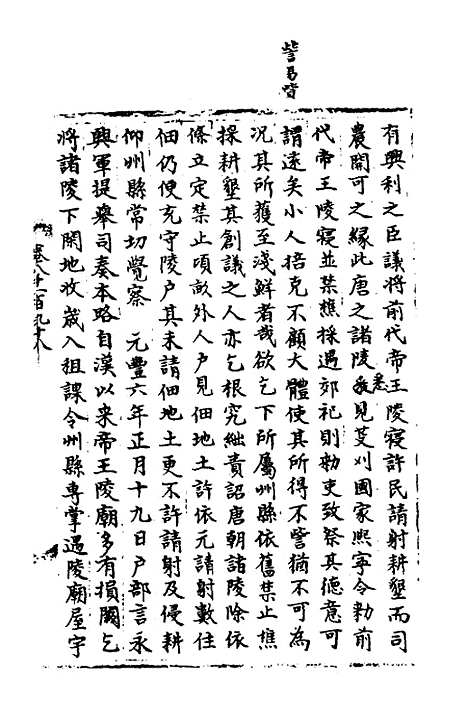 訾易呰
有興利之臣議將前代帝王陵寢許民請射耕墾而司
農開可之緣此唐之諸陵悉見芟刈國家熙寧令勑前
代帝王陵寢並禁樵採遇郊祀則勑吏致祭其德意可
謂遠矣小人掊克不顧大體使其所得不訾猶不可為
況其所獲至淺鮮者哉欲乞下所屬州縣依舊禁止樵
採耕墾其創議之人亦乞根究絀責詔唐朝諸陵除依
條立定禁止頃畝外人戶見佃地土許依元請射數住
佃仍便充守陵戶其未請佃地土更不許請射及侵耕
仰州縣常切覺察 元豐六年正月十九日戶部言永
興軍提舉司奏本路自漢以來帝王陵廟多有損闕乞
將諸陵下閑地收歲入租課令州縣專掌遇陵廟屋宇